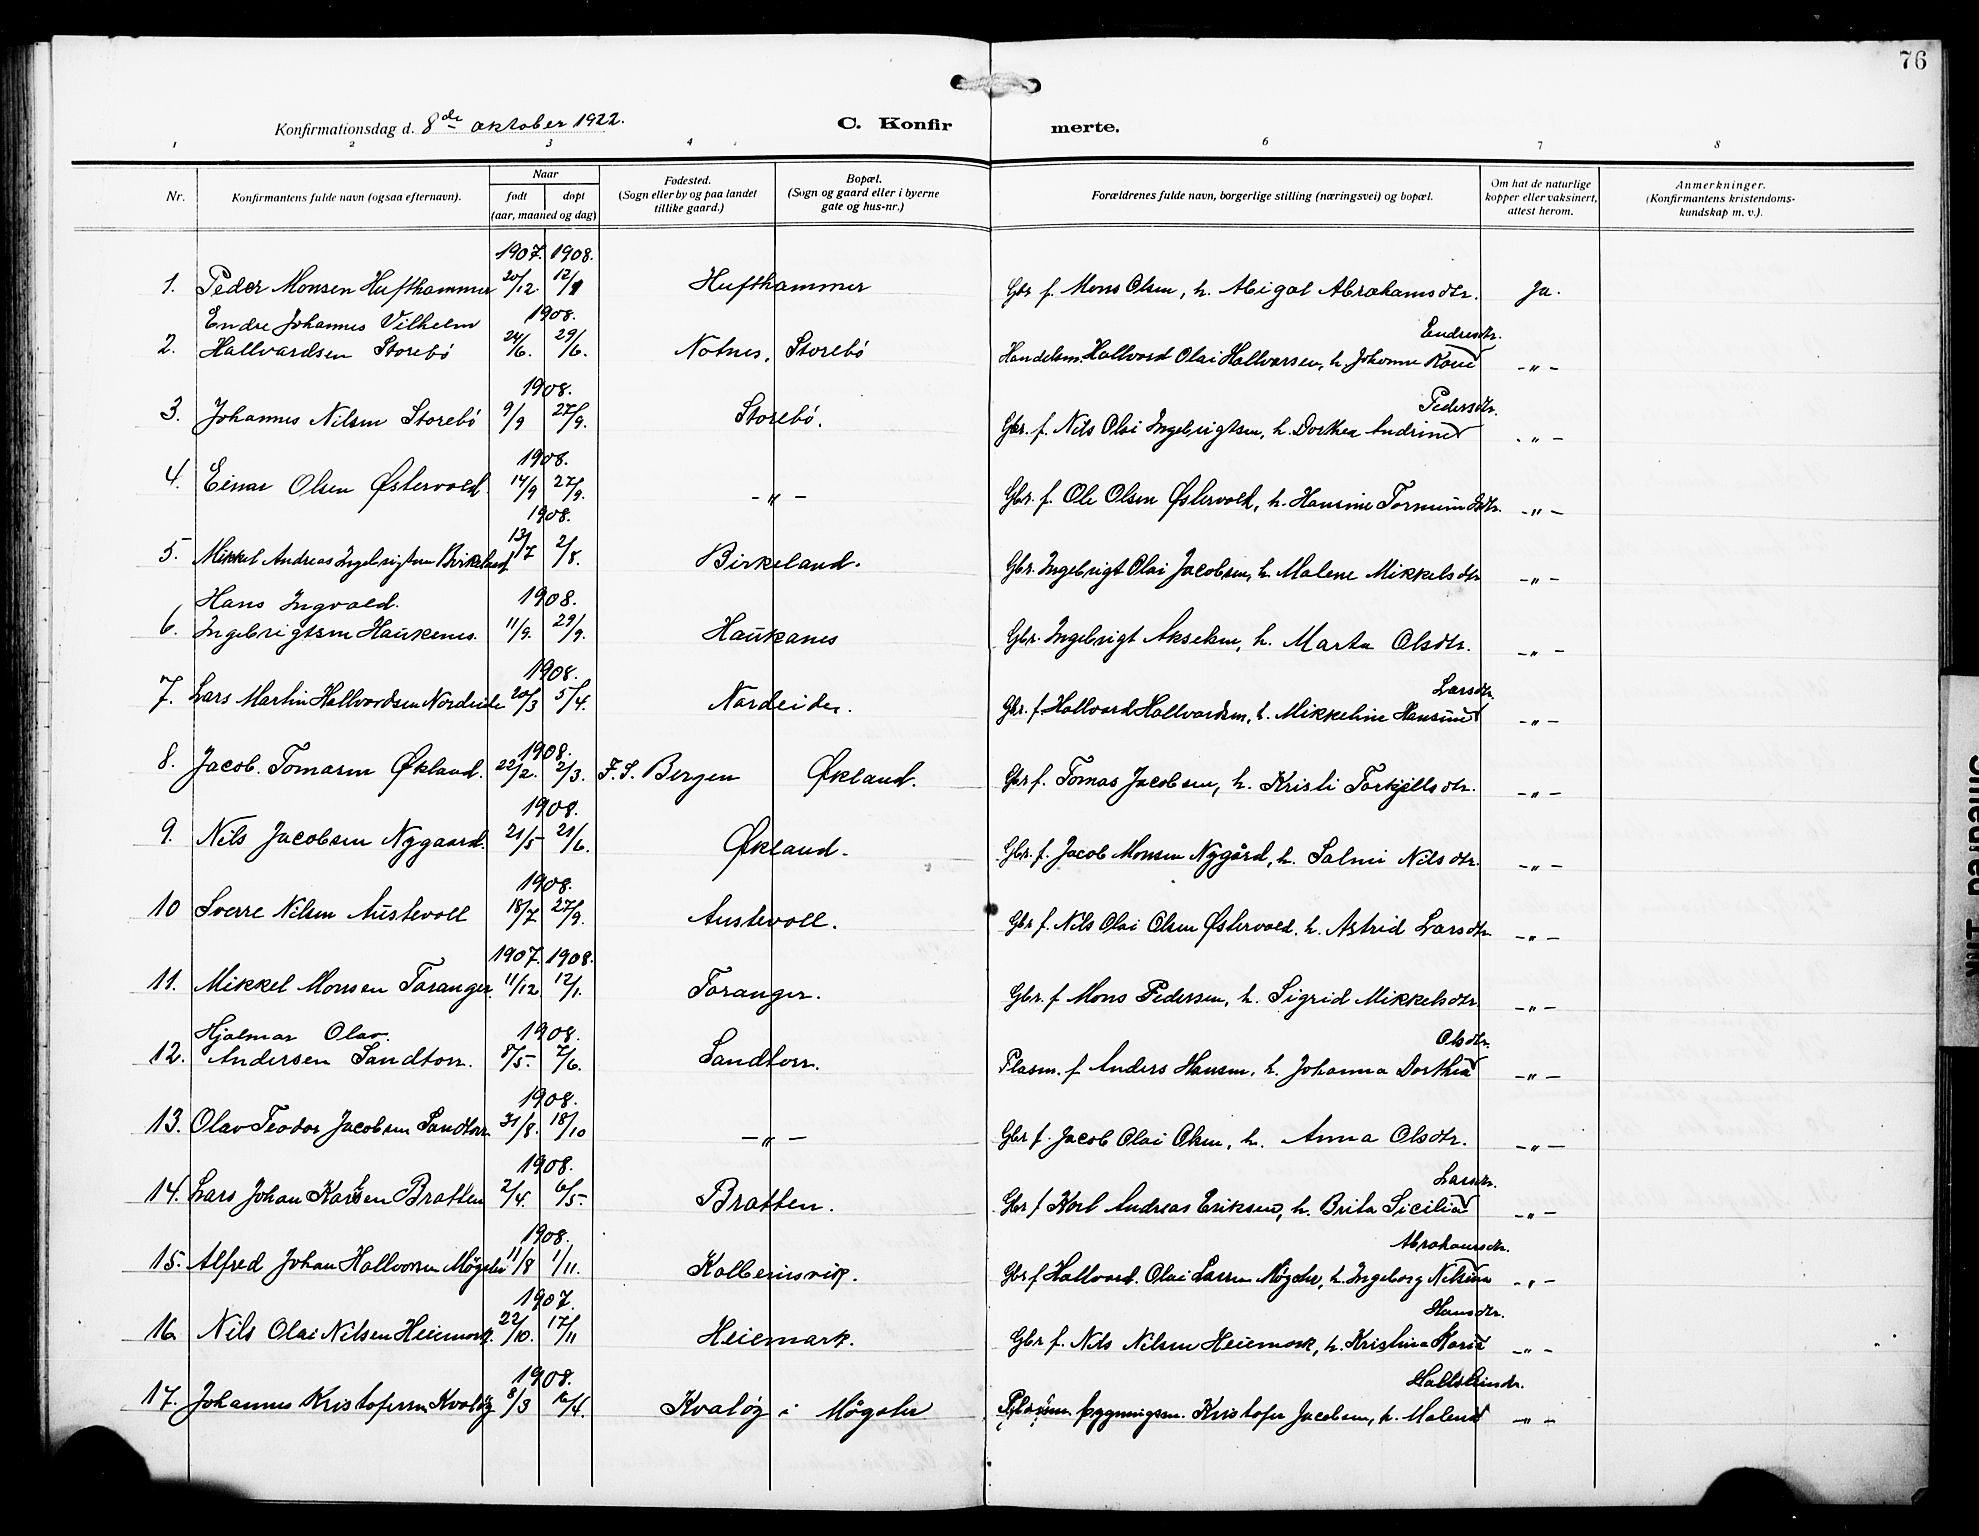 76
Konfirmationsdag d. 8de oktober 1922.
C. Konfirmerte.
1 2 3 4 6 7 8
Nr.
Konfirmantens fulde navn (ogsaa efternavn).
Naar
født døpt
(aar, maaned og dag)
Fødested.
(Sogn eller by og paa landet
tillike gaard.)
Bopæl.
(Sogn og gaard eller i byerne
gate og hus-nr.)
Forældrenes fulde navn, borgerlige stilling (næringsvei) og bopæl.
Om hat de naturlige
kopper eller vaksinert,
attest herom.
Anmerkninger.
(Konfirmantens kristendoms-
kundskap m. v.).
1907. 1908.
1. Peder Monsen Hufthammer 20/12. 12/1 Hufthammer Gbr f. Mons Olsen, h. Abigal Abrahamsdtr. Ja.
Endre Johannes Vilhelm 1908. Endresdtr.
2. Hallvardsen Storebø 24/6. 29/6. Notnes, Storebø Handelsm. Hallvard Olai Hallvarsen, h. Johanne Karie -„-
1908. Pedersdtr.
3. Johannes Nilsen Storebø 9/9 27/9. Storebø. Gbr. f. Nils Olai Ingebrigtsen, h. Dorthea Andrine -„-
1908.
4. Einar Olsen Østervold 14/9 27/9. -„- Gbr. f. Ole Olsen Østervold, h. Hansine Tormunddtr. -„-
1908.
5. Mikkel Andreas Ingebrigtsen Birkeland 13/7 2/8. Birkeland. Gbr. Ingebrigt Olai Jacobsen, h. Malene Mikkelsdtr -„-
Hans Ingvald. 1908.
6. Ingebrigtsen Haukenes. 11/9. 29/9. Haukanes Gbr. Ingebrigt Akselsen, h. Marta Olsdtr. -„-
1908. Larsdtr.
7. Lars Martin Hallvardsen Nordeide 20/3 5/4. Nordeide. Gbr. f Hallvard Hallvardsen, h. Mikkeline Hansine -„-
1908.
8. Jacob. Tomasen Økland. 22/2. 2/3. F. S. Bergen Økland. Gbr f. Tomas Jacobsen, h. Kristi Torkjellsdtr. -„-
1908.
9. Nils Jacobsen Nygaard. 21/5 21/6. Økland. Gbr. f. Jacob Monsen Nygård, h. Salmi Nilsdtr. -„-
1908.
10 Sverre Nilsen Austevoll 18/7 27/9. Austevoll. Gbr f. Nils Olai Olsen Østervold. h. Astrid Larsdtr. -„-
1907. 1908.
11. Mikkel Monsen Toranger. 11/12. 12/1. Toranger. Gbr. f Mons Pedersen, h. Sigrid Mikkelsdtr -„-
Hjalmar Olav. 1908. Olsdtr.
12. Andersen Sandtorr. 8/5- 7/6. Sandtorr. Plasm. f Anders Hansen, h. Johanna Dorthea -„-
1908.
13. Olav Teodor Jacobsen Sandtorr 31/8. 18/10 -„- Gbr f. Jacob Olai Olsen, h. Anna Olsdtr. -„-
1908. Larsdtr.
14. Lars Johan Karlsen Bratten 2/4. 6/5- Bratten. Gbr f Karl Andreas Eriksen, h. Brita Sicilia -„-
1908. Abrahamsdtr.
15. Alfred Johan Hallvorsen Møgster 11/8 1/11. Kolbeinsvik. Gbr f Hallvard. Olai Larsen Møgster, h. Ingeborg Nilsina -„-
1907. Hansdtr.
16 Nils Olai Nilsen Heiemark. 22/10. 17/11 Heiemark. Gbr f. Nils Nilsen Heiemark, h. Kristina Karia -„-
1908. Hallsteindr.
17. Johannes Kristofersen Kvaløy 8/3 /4. Kvaløy i Møgster bygningsm. Kristofer Jacobsen, h. Malena -„-